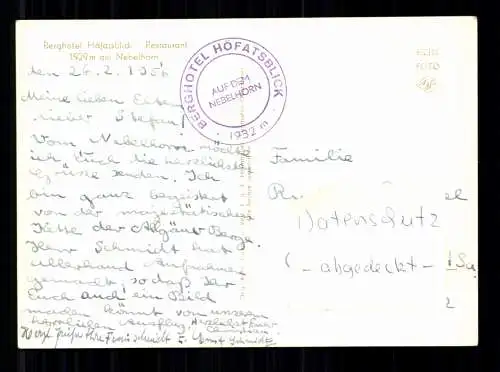 Berghotel Höfatsblick Restaurant
1929 m am Nebelhorn
ECHT
FOTO
BERGHOTEL HÖFATSBLICK
AUF DEM
NEBELHORN
· 1932 m ·
den 26.2.1956
Meine lieben Eltern,
lieber Stefan!
Vom Nebelhorn möchte
ich Euch die herzlichsten
Grüsse senden. Ich
bin ganz begeistert
von der majestätischen
Kette der Allgäuer Berge.
Herr Schmidt hat
allerhand Aufnahmen
gemacht, sodaß Ihr
Euch auch ein Bild
machen könnt von unserem
herrlichen Ausflug. Herzlichst Euer
Herzl. Grüße Ihre Frau Schmidt u. Ernst Schmidt
Familie
Datenschutz
- abgedeckt -